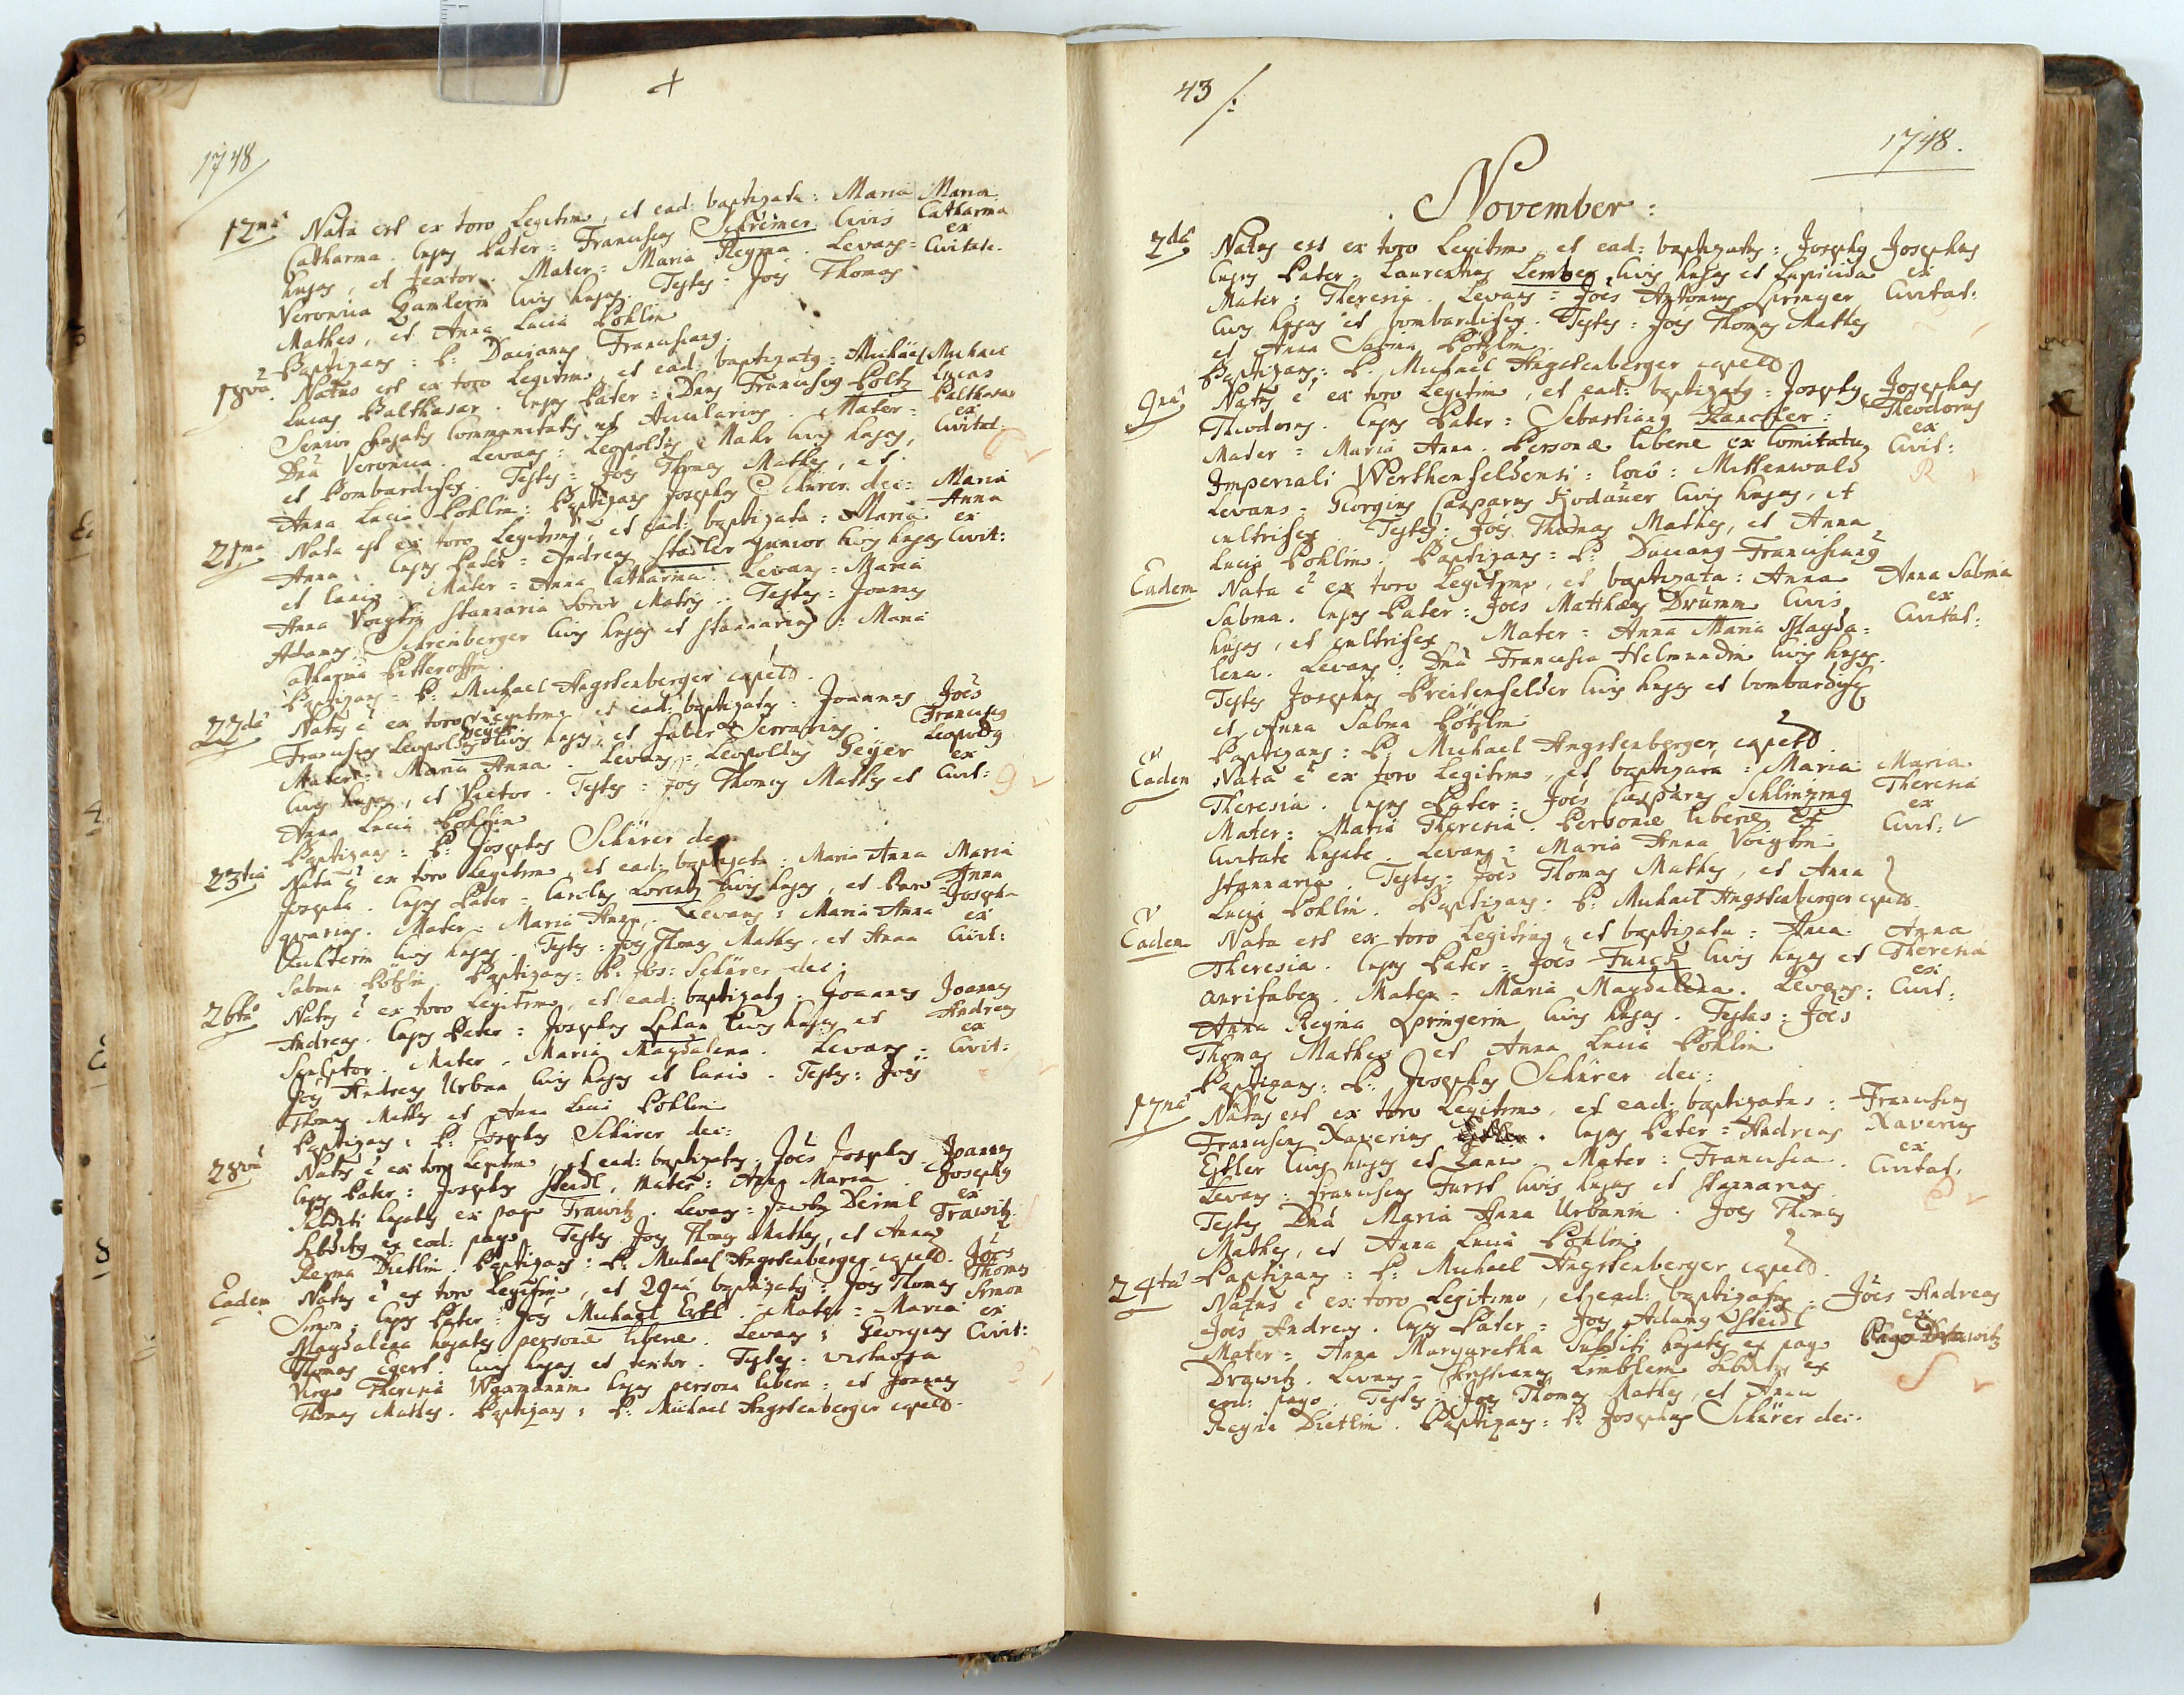 1748
12ma Nata est ex toro Legitimo, et ead: baptizata: Maria Maria
Catharina. Cujus Pater = Franciscus Schremer Civis Catharina
hujas, et textor. Mater = Maria Regina. Levans = ex Civitate.
Veronica Gamlerin Civis hujas. Testes = Joes Thomas
Mathes, et Anna Lucia Pöhlin
Baptizans: P: Franciscanus.
18va Natus est ex toro Legitimo, et ead: baptizatus = Michael Michael
Lucas Balthasar. Cujus Pater: Dnus Franciscus Poltz Lucas
Senior hujatis Communitatis et Acicularius. Mater = Balthasar
Dna Veronica. Levans: Leopoldus Mahr Civis hujas, ex Civitat:
et Bombardifex. Testes = Joes Thomas Mathes, et
Anna Lucia Pöhlin: Baptizans Josephus Schürer dec: Maria
21ma Nata est ex toro Legitimo, et ead: baptizata: Maria Anna
Anna. Cujus Pater = Andreas Stadler Junior Civis hujas ex Civit:
et lanio. Mater = Anna Catharina. Levans = Maria
Anna Voigtin stannaria Soror Matris. Testes = Joannes
Adamus Schrenberger Civis hujas et stannarius: Maria
Baptizans = P: Michael Angstenberger capeld.
22da Natus è ex toro Legitimo, et ead: baptizatus: Joannes Joës
Franciscus Leopoldus Geÿer Civis hujas, et faber Serrarius. Franciscus
Mater = Maria Anna. Levans = Leopoldus Geÿer Leopoldus
Civis hujas, et Vietor. Testes = Joes Thomas Mathes et ex Civit:
Anna Lucia Pöhlin
Baptizans = P: Josephus Schürer dec:
23tia Nata è ex toro Legitimo, et ead: baptizata: Maria Anna Maria
Josepha. Cujus Pater = Carolus Lorentz Civis hujas, et Anna
Mater = Maria Anna. Levans: Maria Anna Josepha
Civis hujas. Testes: Joes Thomas Mathes, et Anna ex Civit:
Sabina Pötzlin. Baptizans: P: Jos: Schürer dec:
26ta Natus è ex toro Legitimo, et ead: baptizatus: Joannes Joannes
Andreas. Cujus Pater = Josephus Civis hujas et Andreas
Sculptor. Mater = Maria Magdalena. Levans = ex Civit:
Joes Andreas Urban Civis hujas et lanio. Testes: Joes
Thomas Mathes et Anna Lucia Pöhlin
Baptizans: P: Josephus Schürer dec:
28va Natus è ex toro Legitimo, et ead: baptizatus: Joës Josephus Joannes
Cujus Pater: Josephus Steidl, Mater: Anna Maria. Josephus
Subditi hujates ex pago Trawitz. Levans = Jacobus Deiml ex Trawitz.
Subditus ex eod: pago. Testes Joes Thomas Mathes, et Anna
Regina Dietlin. Baptizans: P: Michael Angstenberger capeld. Joës
Eadem Natus è ex toro Legitimo, et 29na baptizatus: Joes Thomas Thomas
Simon. Cujus Pater: Joes Michael Ertl. Mater = Maria Simon
Magdalena hujates personæ liberæ. Levans: Georgius ex Civit:
Thomas Egert Civis hujas et textor. Testes:
Virgo Theresia Waxmannin hujas persona libera: et Joannes
Thomas Mathes. Baptizans: P: Michael Angstenberger capeld.
43 /:
1748.
November:
2da Natus est ex toro Legitimo, et ead: baptizatus: Josephus Josephus
Cujus Pater = Laurentius Lember Civis hujas et Lapicida ex
Mater: Theresia. Levans = Joës Antonius Springer Civitat:
Civis hujas et bombardifex. Testes: Joes Thomas Mathes
et Anna Sabina Pötzlin.
Baptizans: P. Michael Angstenberger capeld.
9na Natus è ex toro Legitimo, et ead: baptizatus: Josephus Josephus
Theodorus. Cujus Pater: Sebastianus Theodorus
Mater = Maria Anna. Personæ liberæ ex Comitatu ex Civit:
Imperiali Werthenfeldensi: locô: Mittenwald
Levans = Georgius Casparus Hodauer Civis hujas, et
cultrifex. Testes: Joes Thomas Mathes, et Anna
Lucia Pöhlin. Baptizans = P: Franciscanus
Eadem Nata è ex toro Legitimo, et baptizata: Anna Anna Sabina
Sabina. Cujus Pater: Joës Matthæus Drumm Civis ex
hujas, et cultrifex. Mater = Anna Maria Magda= Civitat:
lena. Levans: Dna Francisca Helmundin Civis hujas.
Testes Josephus Breitenfelder Civis hujas et bombardifex
et Anna Sabina Pötzlin
Baptizans: P. Michael Angstenberger capeld.
Eadem Nata è ex toro Legitimo, et baptizata: Maria Maria
Theresia. Cujus Pater = Joës Casparus Schlinzing Theresia
Mater: Maria Theresia. Personæ liberæ ex ex
Civitate hujate. Levans = Maria Anna Voigtin Civit:
stannaria. Testes = Joës Thomas Mathes, et Anna
Lucia Pöhlin. Baptizans: P: Michael Angstenberger capeld.
Eadem Nata est ex toro Legitimo, et baptizata: Anna Anna
Theresia. Cujus Pater = Joës Funck Civis hujas et Theresia
aurifaber. Mater = Maria Magdalena. Levans: ex Civit:
Anna Regina Springerin Civis hujas. Testes: Joës
Thomas Mathes et Anna Lucia Pöhlin
Baptizans: P: Josephus Schürer dec:
17ma Natus est ex toro Legitimo, et ead: baptizatus: Franciscus
Franciscus Xaverius. Cujus Pater = Andreas Xaverius
Estler Civis hujas et Lanio. Mater: Francisca. ex Civitat:
Levans: Franciscus Furst Civis hujas et stannarius
Testes Dna Maria Anna Urbanin. Joes Thomas
Mathes, et Anna Lucia Pöhlin
Baptizans: P: Michael Angstenberger capeld.
24ta Natus è ex toro Legitimo, et ead: baptizatus: Joës Andreas
Joës Andreas. Cujus Pater = Joes Adamus Steidl ex
Mater = Anna Margaretha Subditi hujates ex pago Pago Drawitz
Drawitz. Levans = Subditus ex
eod: pago. Testes: Joes Thomas Mathes, et Anna
Regina Dietlin. Baptizans: P: Josephus Schürer dec: